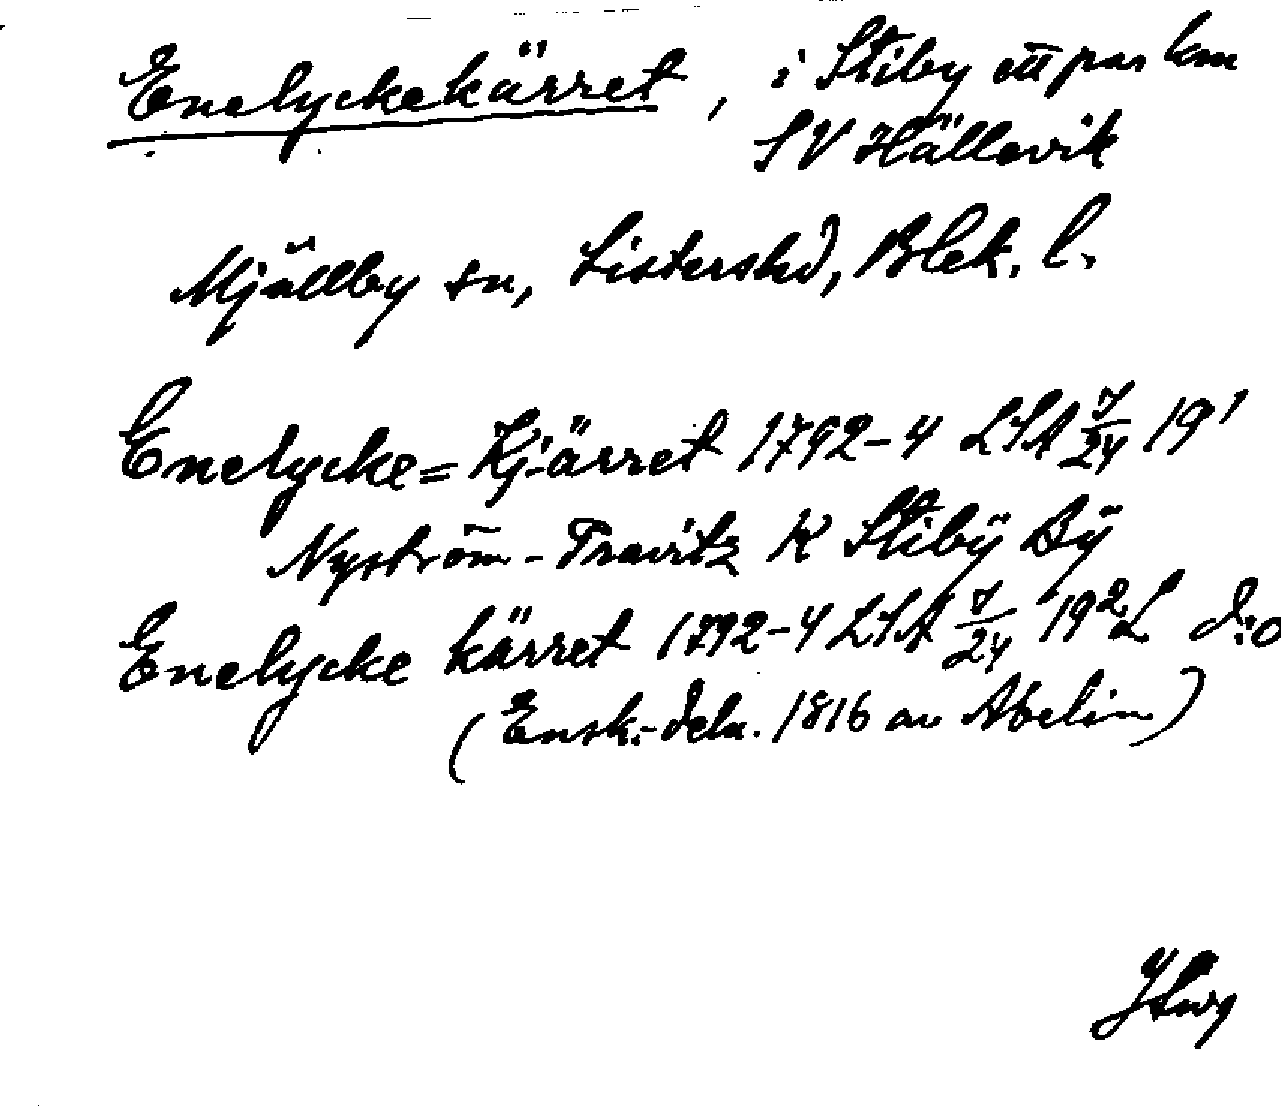 Enelyckekärret, i Stiby ett par km
SV Hällevik
Mjällby sn, Listers hd, Blek. l.
Enelycke=Kjärret 1792-4 LSA 7/24 19¹
Nyström-Travitz K Stibÿ Bÿ
Enelycke kärret 1792-4 LSA 7/24 19² L d:o
(Ensk.-deln. 1816 av Abelin)